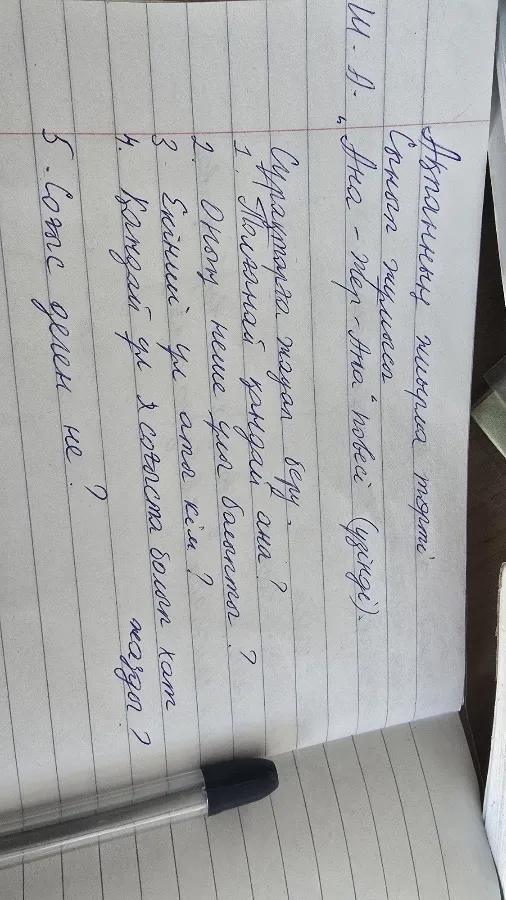 Ақпанның жиырма төрті
Сынып жұмысы
Ш. А. "Ана - Жер - Ана" повесі (үзінді).
Сұрақтарға жауап беру.
1. Толғанай қандай ана?
2. Оның неше ұлы болыпты?
3. Екінші ұл аты кім?
4. Қандай ұл соғыста болып хат
жазды?
5. Соғыс деген не?